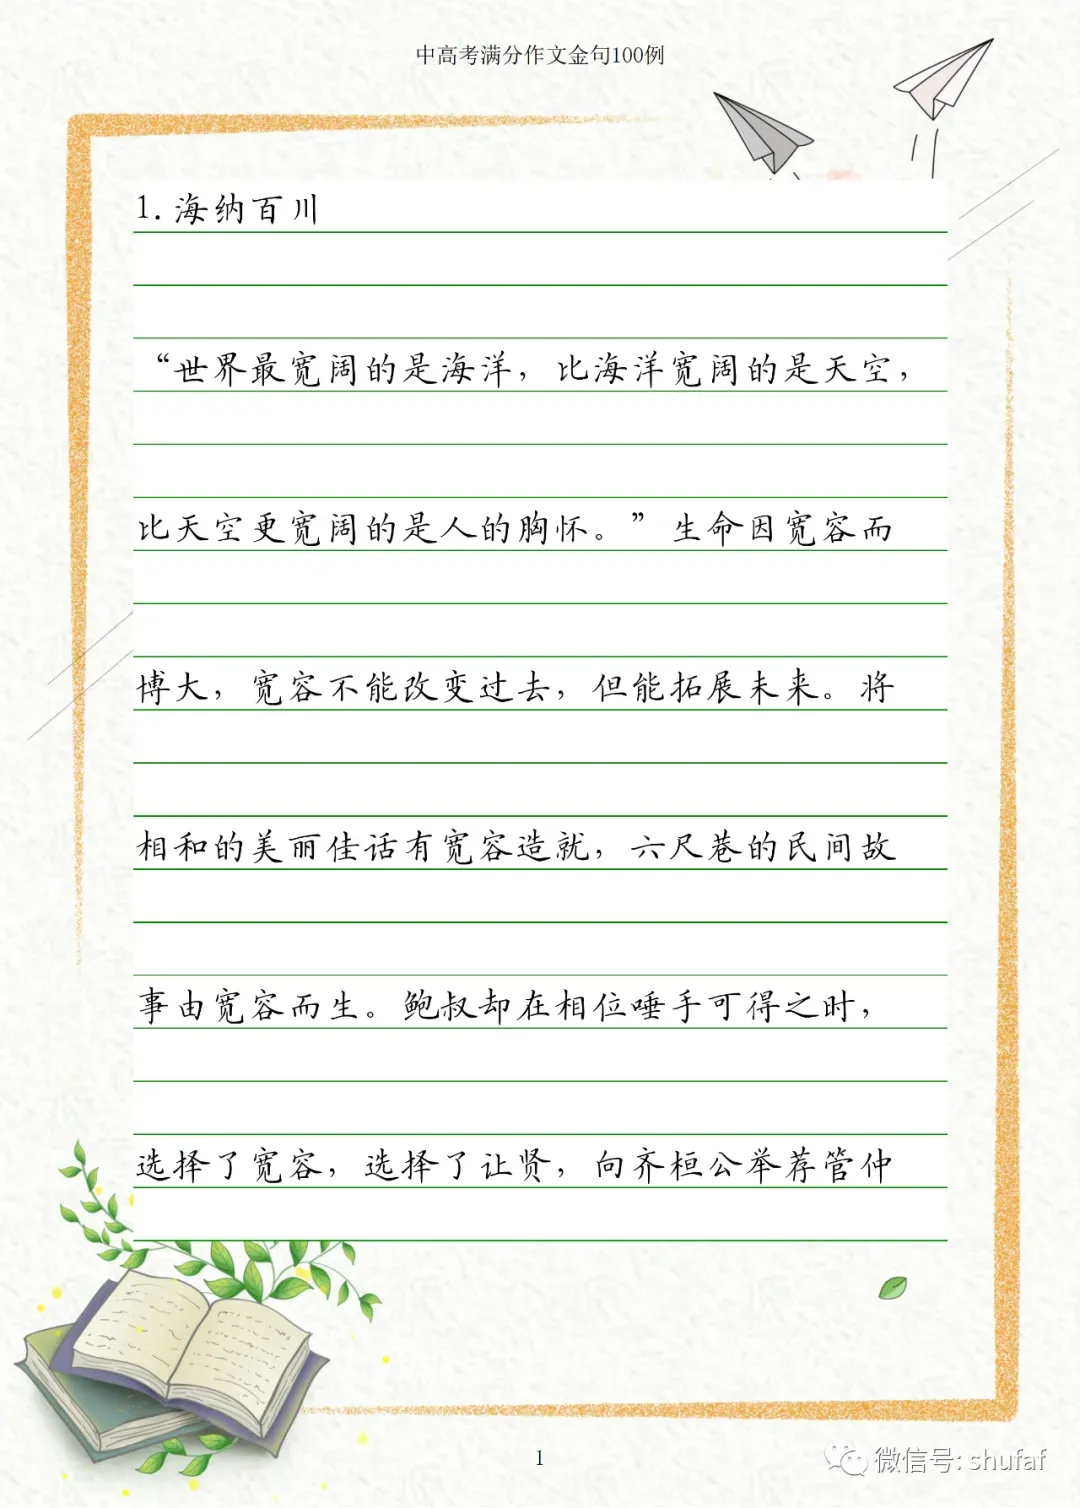 中高考满分作文金句100例
1.海纳百川
“世界最宽阔的是海洋，比海洋宽阔的是天空，
比天空更宽阔的是人的胸怀。”生命因宽容而
博大，宽容不能改变过去，但能拓展未来。将
相和的美丽佳话有宽容造就，六尺巷的民间故
事由宽容而生。鲍叔却在相位唾手可得之时，
选择了宽容，选择了让贤，向齐桓公举荐管仲
1
微信号: shufaf